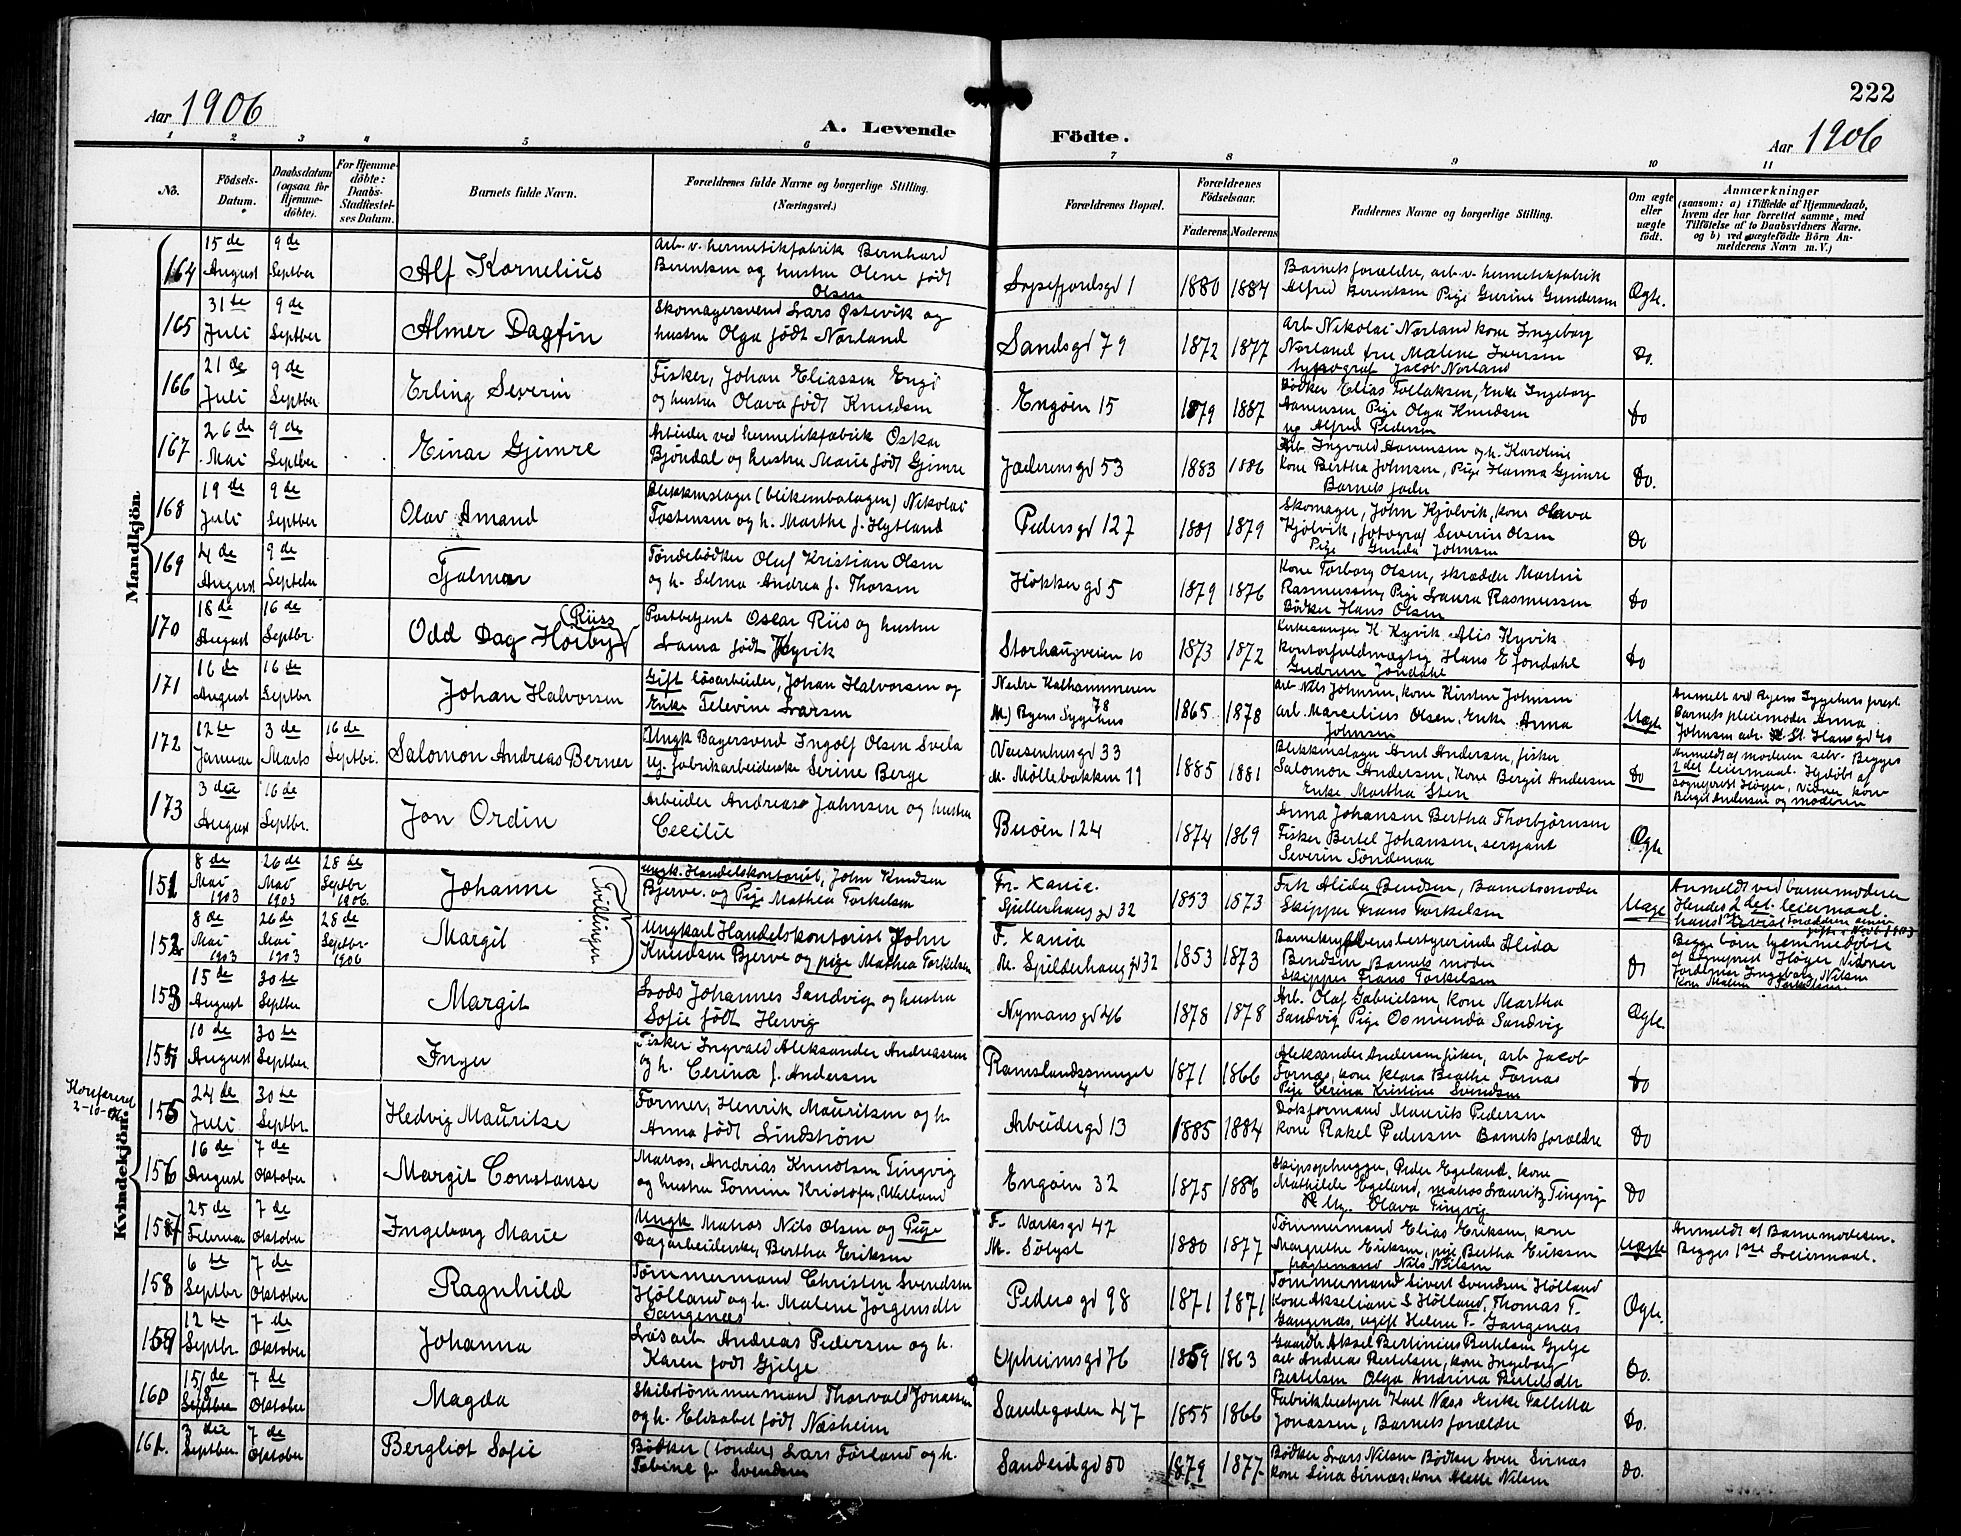 222
Aar 1906
A. Levende Födte.
Aar 1906
1 2 3 4 5 6 7 8 9 10 11
No.
Födsels-Datum.
Daabsdatum (ogsaa for Hjemme-döbte).
For Hjemme-döbte: Daabs-Stadfæstel-ses Datum.
Barnets fulde Navn.
Forældrenes fulde Navne og borgerlige Stilling. (Næringsvei.)
Forældrenes Bopæl.
Forældrenes Födselsaar.
Faderens Moderens
Faddernes Navne og borgerlige Stilling.
Om ægte eller uægte födt.
Anmærkninger
(saasom: a) i Tilfælde af Hjemmedaab,
hvem der har forrettet samme, med
Tilföielse af to Daabsvidners Navne.
og b) ved uægtefödte Börn An-
melderens Navn m. V.)
Mandkjön.
164 15 de August 9 de Septber Alf Kornelius
Arb. v. hermetikfabrik Bernhard
Berentsen og hustru Olene født
Olsen
1 1880 1884
Barnets forældre, arb. v. hermetikfabrik
Alfred Berentsen Pige Gurine Gundersen
Ægte.
165 31 te Juli 9 de Septber Almer Dagfin
Skomagersvend Lars Østevik og
hustru Olga født Norland
Sandsgd 79 1872 1877
Arb Nikolai Norland kone Ingeborg
Norland fru Malene Iversen
typograf Jacob Norland
Do.
166 21 de Juli 9 de Septber Erling Severin
Fisker, Johan Eliassen Engø
og hustru Olava født Knudsen
Engøen 15 1879 1887
Bødker Elias Tollaksen, Enke Ingeborg
Aanensen Pige Olga Knudsen
ug Alfred Pedersen
Do
167 26 de Mai 9 de Septber Einar Gjimre
Arbeider ved hermetikfabrik Oskar
Bjondal og hustru Marie født Gjimre
Jæderensgd 53 1883 1886
Arb. Ingvald Aanensen og h. Karoline
kone Bertha Johnsen, Pige Hanna Gjimre
Barnets fader
Do.
168 19 de Juli 9 de Septber Olav Amand
Blekkenslager (blikembalagen) Nikolai
Tostensen og h. Marthe f. Hytland
Pedersgd 127 1881 1879
Skomager, John Kjølvik, kone Olava
Kjølvik, fotograf Severin Olsen
Pige Gunda Johnsen
Do
169 4 de August 9 de Septeber Hjalmar
Tøndebødker Oluf Kristian Olsen
og h. Selma Andrea f. Thorsen
Høkkergd 5 1879 1876
Kone Torborg Olsen, skrædder Martin
Rasmussen, Pige Laura Rasmussen
Bødker Hans Olsen
Do
170 18 de August 16 de Septbr. Odd Dag Hørby (Riiss)
Postbetjent Oscar Riis og hustru
Laura født Kyvik
Storhaugveien 10 1873 1872
Kirkesanger K. Kyvik. Alis Kyvik
kontorfuldmægtig Hans E Jondahl
Gudrun Jondahl
Do
171 16 de August 16 de Septbr Johan Halvorsen
Gift løsarbeider, Johan Halvorsen og
Enke Televine Larsen
Nedre Kalhammeren 78
M) Byens Sygehus
1865 1878
Arb Nils Johnsen, kone Kirsten Johnsen
arb. Marcelius Olsen, Enke Anna
Johnsen
Uægte
Anmeldt ved Byens Sygehus prest
Barnets pleiemoder Anna
Johnsen adr. St. Hansgd 40
172 12 te Januar 3 de Marts 16 de Septbr. Salomon Andreas Berner
Ungk Bagersvend Ingolf Olsen Svela
Ug. fabrikarbeiderske Serine Berge
Vaisenhusgd 33
M. Møllebakken 11
1885 1881
Blikkenslager Arnt Andersen, fisker
Salomon Andersen, Kone Bergit Andersen
Enke Martha Sten
Do
Anmeldt af moderen selv. Begges
2 det leiermaal. Hjdøbt af
sogneprest Høyer, Vidner kone
Bergit Andersen og moderen
173 3 die August 16 de Septbr. Jon Ordin
Arbeider Andreas Johnsen og hustru
Cecilie
Buøen 124 1874 1869
Anna Johansen Bertha Thorbjørnsen
Fisker Bertel Johansen, sersjant
Severin Søndenaa
Ægte
Kvindekjön.
Konfereret
2-10-06
151 8 de Mai 1903 26 de Mai 1903 28 de Septbr 1906 Johanne
(Tvillinger)
Ungk. Handelskontorist, John Knudsen
Bjerve. og Pige Mathea Torkelsen
Fr. Xania.
Spilderhaugsgd 32 1853 1873
Frk Alida Bendsen, Barnetsmoder
Skipper Frans Torkelsen
Uægte
Anmeldt ved barnemoderen
Hendes 2 det leiermaal.
152 8 de Mai 1903 26 de Mai 1903 28 de Septbr. 1906 Margit
Ungkarl Handelskontorist John
Knudsen Bjerve og pige Mathea Torkelsen
F. Xania
M. Spilderhaugsgd 32 1853 1873
Barnekrybbens bestyrerinde Alida
Bendsen Barnets moder
Skipper Frans Torkelsen
Do
Begge børn hjemmedøbte
af Sogneprest Høyer Vidner
Jordemor Ingeborg Nilsen
Kone Malene Torkelsen
153 15 de August 30 te Septber Margit
Lods Johannes Sandvig og hustru
Sofie født Hervig
Nymansgd 46 1878 1878
Arb. Olaf Gabrielsen, kone Martha
Sandvig Pige Osmunda Sandvig
Ægte.
10 de August 30 te Septber Inger
Fisker Ingvald Aleksander Andreassen
og h. Cerina f. Andersen
Ramslandssmuget 4 1871 1866
Aleksander Andersen fisker, arb Jacob
Fornæs, kone Klara Beathe Fornæs
Pige Cerina Kristine Svendsen
Do
155 24 de Juli 30 te Septbr. Hedvig Mauritse
Former, Henrik Mauritsen og h.
Anna født Lindstrøm
Arbeidergd 13 1885 1884
Dokformand Maurits Pedersen
kone Rakel Pedersen Barnets forældre
Do
156 16 de August 7 de Oktober Margit Constanse
Matros, Andrias Knudsen Tingvig
og hustru Tomine Kristofa, Ulland
Engøien 32 1875 1886
Skipsophugger, Peder Egeland, kone
Mathilde Egeland, matros Lauritz Tingvig
Ug. Olava Tingvig
Do
157 25 de Februar 7 de Oktober Ingeborg Marie
Ungk Matros Nils Olsen og Pige
Dagarbeiderske, Bertha Eriksen
F. Værksgd 47
M. Sølyst
1880 1877
Tømmermand Elias Eriksen, kone
Margrethe Eriksen, pige Bertha Eriksen
fragtemand Nils Nilsen
Uægte
Anmeldt af Barnemoderen.
Begges 1ste Leiermaal.
158 6 te Septbr 7 de Oktober Ragnhild
Tømmermand Christen Svendsen
Hølland og h. Malene Jörgensdtr
Gangenæs
Pedersgd 98 1871 1871
Tømmermand Sivert Svendsen Hölland
Kone Akseliani S Hölland, Thomas T.
Gangenæs, ugift Helene T. Gangenæs
Ægte.
159 12 te Septbr. 7 de Oktober Johanna
Løsarb Andreas Pedersen og h.
Karen født Gjelje
Opheimsgd 76 1859 1863
Gaardbr. Aksel Bertinius Bertelsen Gjelje
arb Andreas Bertelsen, kone Ingeborg
Bertelsen Olga Andrina Bertelsdtr
Do.
160 15 de Septber 7 de Oktober Magda
Skibstømmermand Thorvald Jonassen
og h. Elisabet født Næsheim
Sandegaden 47 1855 1866
Fabrikbestyrer Karl Næss Enke Talletta
Jonassen, Barnets forældre
Do.
161. 3 die Septber. 7 de Oktober Bergliot Sofie
Bødker (tønder) Lars Førland og h.
Tobine f. Svendsen
Sandeidgd 50 1879 1877
Bødker Lars Nilsen Bødker Sven Sirnæs
kone Lina Sirnæs, kone Mette Nilsen
Do.